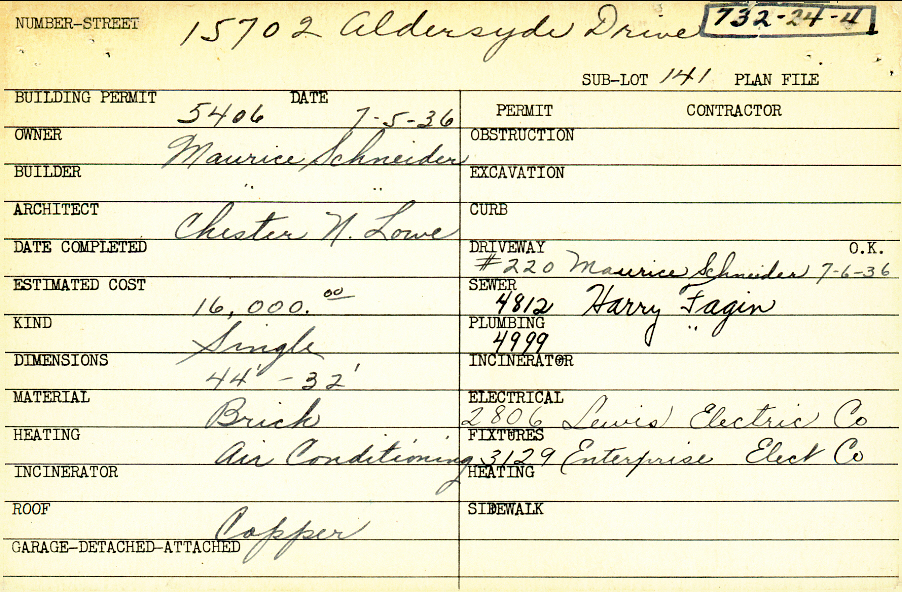 NUMBER-STREET 15702 Aldersyde Drive 732-24-4
SUB-LOT 141 PLAN FILE
BUILDING PERMIT 5406 DATE 7-5-36
PERMIT CONTRACTOR
OWNER Maurice Schneider
OBSTRUCTION
BUILDER " "
EXCAVATION
ARCHITECT Chester N. Lowe
CURB
DATE COMPLETED
DRIVEWAY #220 Maurice Schneider 7-6-36 O.K.
ESTIMATED COST 16,000.00
SEWER 4812 Harry Fagin
KIND Single
PLUMBING 4999 "
DIMENSIONS 44' - 32'
INCINERATOR
MATERIAL Brick
ELECTRICAL 2806 Lewis Electric Co
HEATING Air Conditioning
FIXTURES 3129 Enterprise Elect Co
INCINERATOR
HEATING
ROOF Copper
SIDEWALK
GARAGE-DETACHED-ATTACHED